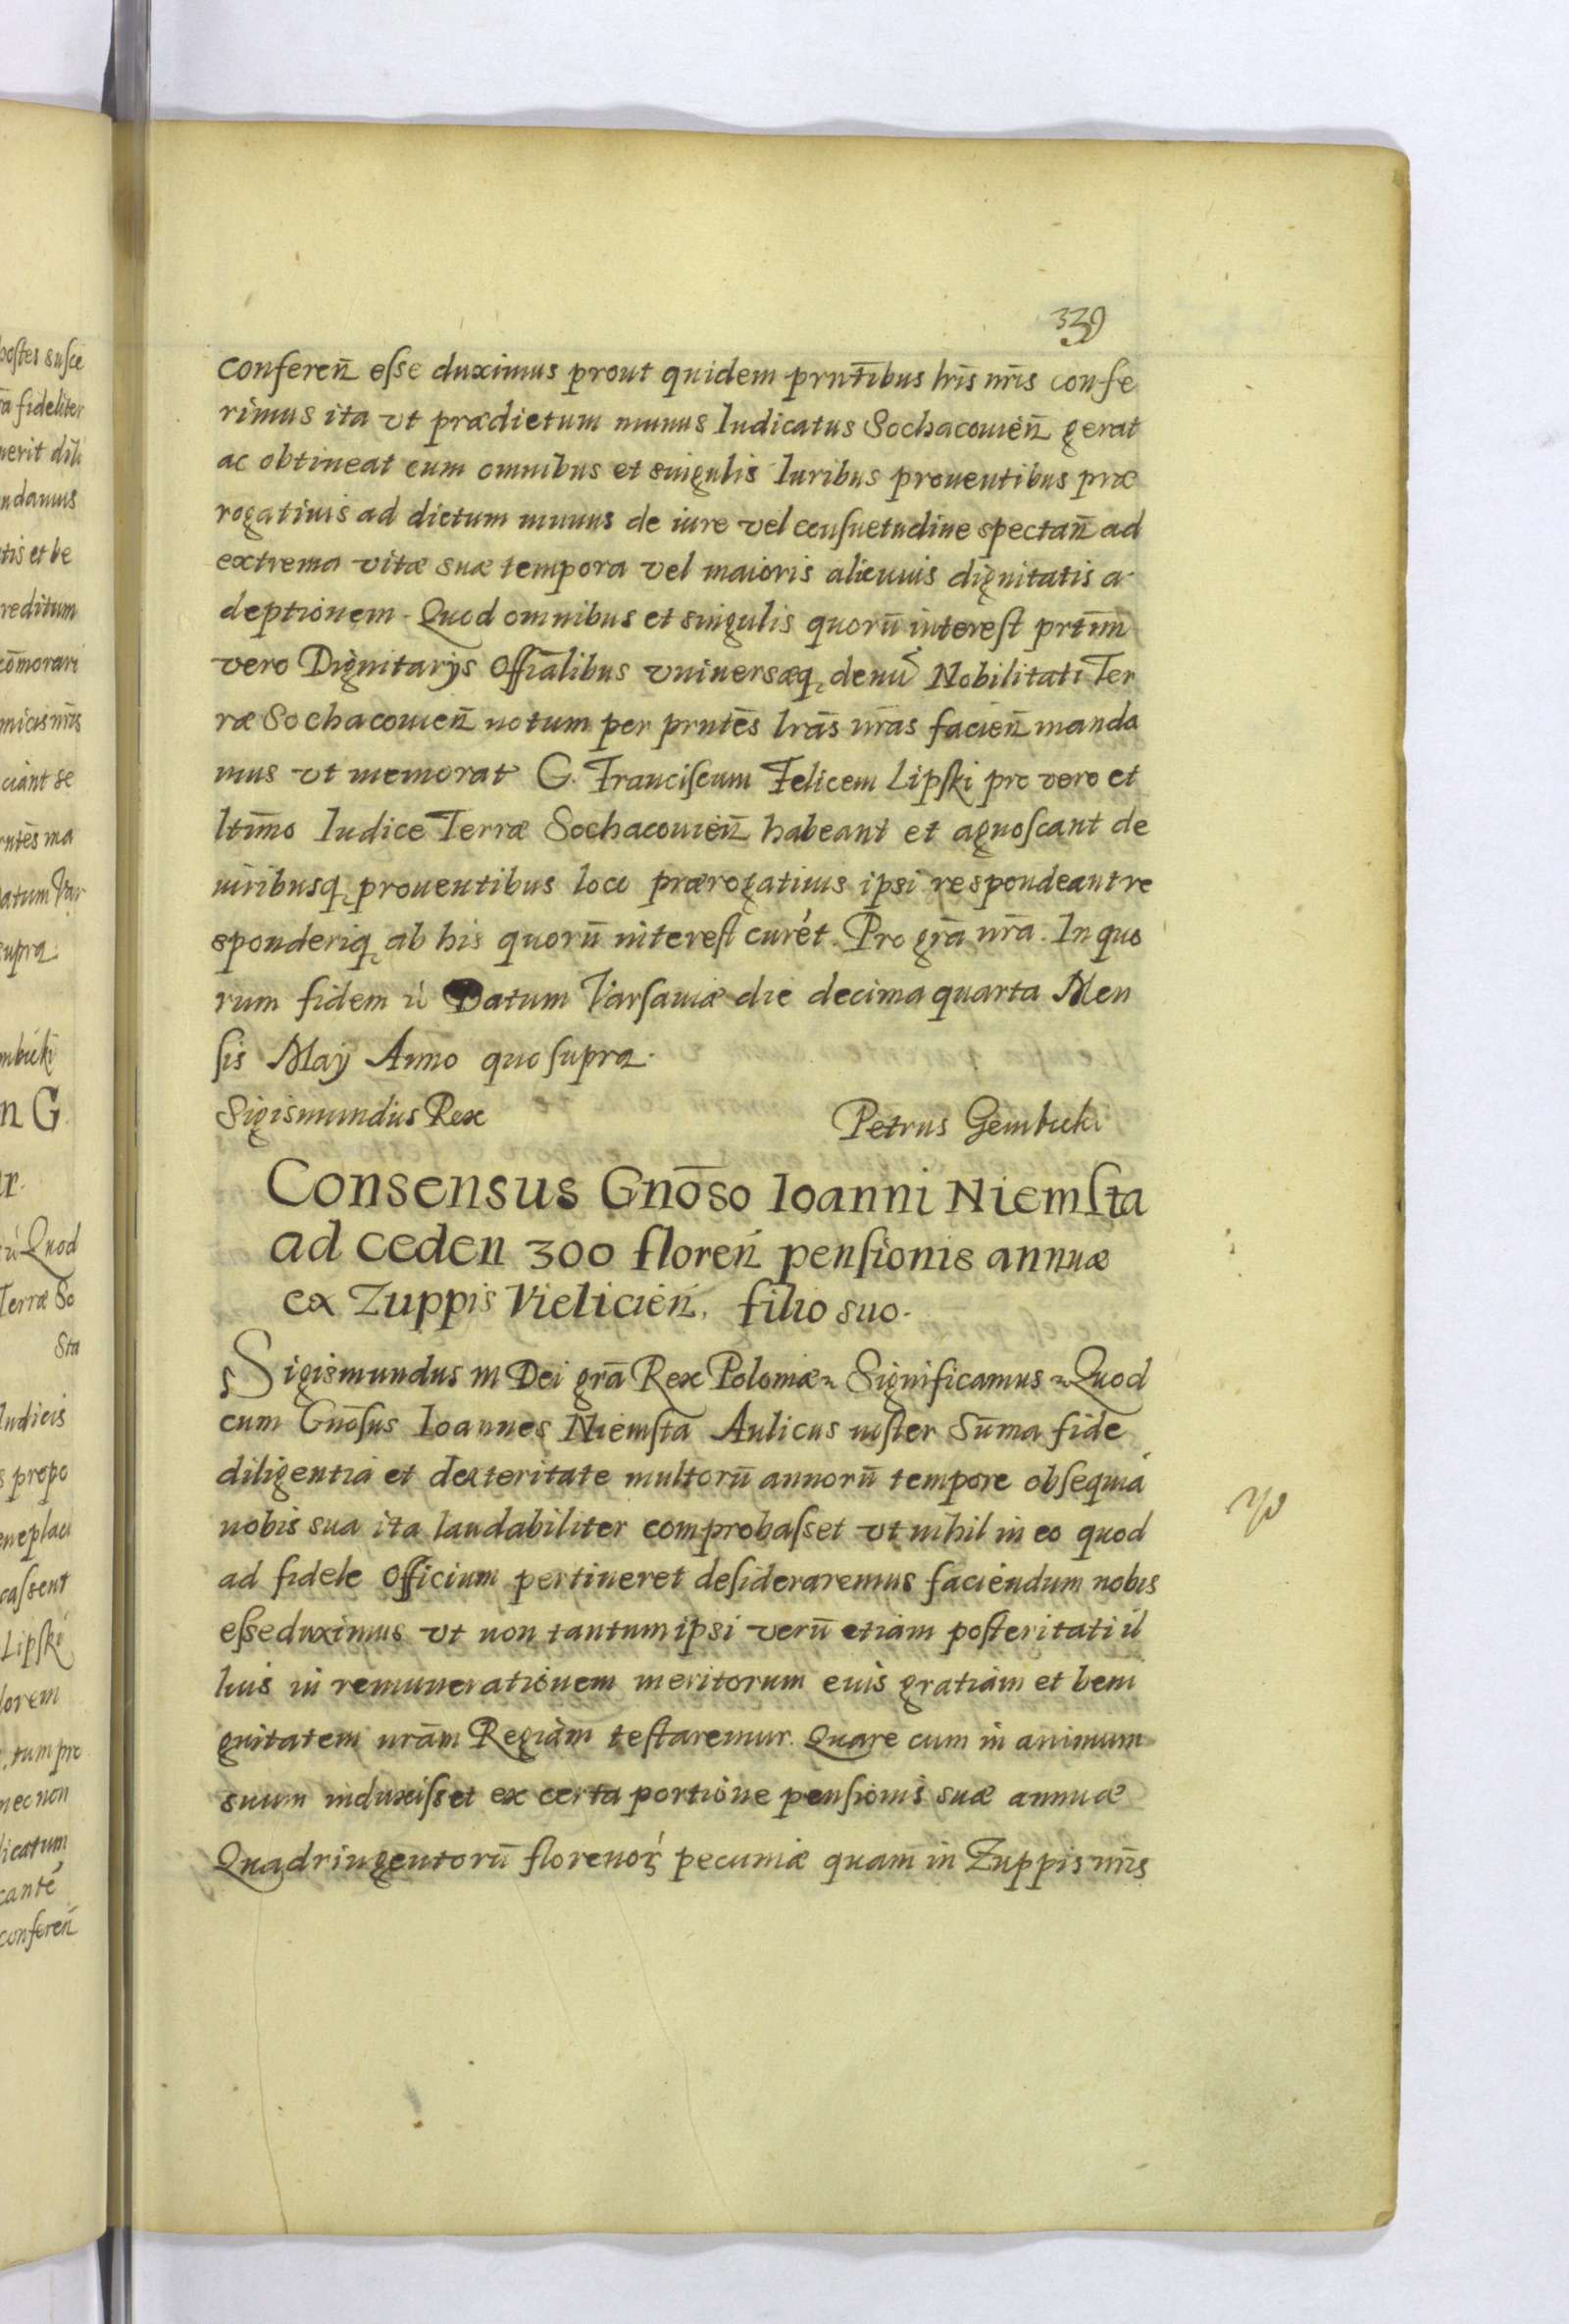 339
conferen̄ eſse duximus prout quidem prnt̄ibus lr̄is nr̄is confe
rimus ita vt prædictum munus Iudicatus Sochacouien̄ gerat
ac obtineat cum omnibus et singulis Iuribus prouentibus præ
rogatiuis ad dictum munus de iure vel conſuetudine spectan̄ ad
extrema vitæ suæ tempora vel maioris alicuius dignitatis a
deptionem. Quod omnibus et singulis quorū intereſt prtim̄
vero Dignitarys Offiālibus vniversæq, denū Nobilitati Ter
ræ Sochacouien̄ notum per prntēs lrās nr̄as facien̄ manda
mus vt memorat G. Franciſcum Felicem Lipſki pro vero et
ltīmo Iudice Terræ Sochacouien̄ habeant et agnoſcant de
iuribusq, prouentibus loco prærogatiuis ipsi respondeant re
sponderiq, ab his quorū intereſt curét. Pro grā nr̄a. In quo
rum fidem ű Datum Varſauiæ die decima quarta Men
ſis May Anno quo ſupra.
Sigismundus Rex Petrus Gembicki
Consensus Gnōso Ioanni Niemſta
ad ceden 300 floreń penſionis annuæ
ex Zuppis Vielicień, filio suo.
Sigismundus III Dei grā Rex Poloniæ ~ Significamus ~ Quod
cum Gnōſus Ioannes Niemſta Aulicus noſter Sum̄a fide
diligentia et dexteritate multorū annorū tempore obſequia
nobis sua ita laudabiliter comprobaſset vt nihil in eo quod
ad fidele Officium pertineret deſideraremus faciendum nobis
eſse duximus vt non tantum ipsi verū etiam poſteritati il
lius in remunerationem meritorum eius gratiam et beni
gnitatem nrām Regiam teſtaremur. Quare cum in animum
suum induxiſset ex certa portione penſionis suæ annuæ
Quadringentorū florenoꝝ pecuniæ quam in Zuppis nr̄is